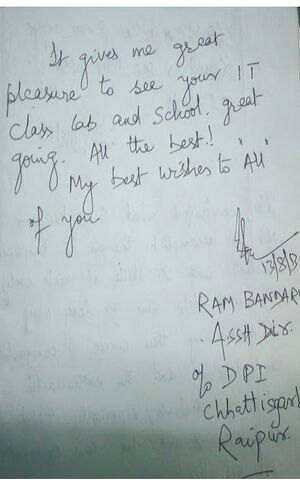 It gives me great
pleasure to see your IT
Class lab and School. great
going. All the best!
My best wishes to "All"
of you
13/8/13
RAM BANDARI
Asstt Dir.
o/o DPI
Chhattisgarh
Raipur.